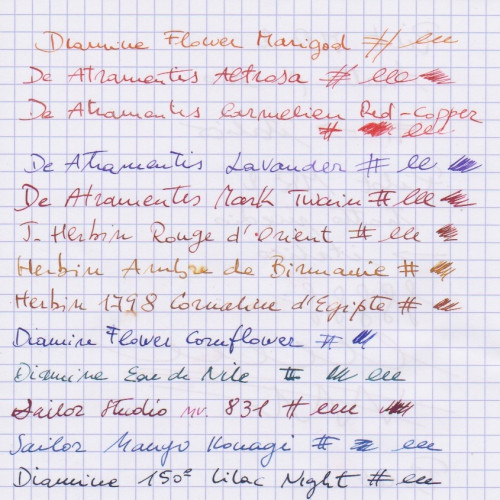 Diamine Flower Marigod # eee
De Atramentis Altrosa # eee
De Atramentis Carnelien Red-Copper
# eee
De Atramentis Lavander # ee
De Atramentis Mark Twain # eee
J. Herbin Rouge d'Orient # eee
Herbin Ambre de Birmanie #
Herbin 1798 Cornaline d'Egipte #
Diamine Flower Cornflower #
Diamine Eau de Nile # eee
Sailor Studio MV. 831 # eee
Sailor Manyo Konagi # eee
Diamine 150° Lilac Night # eee